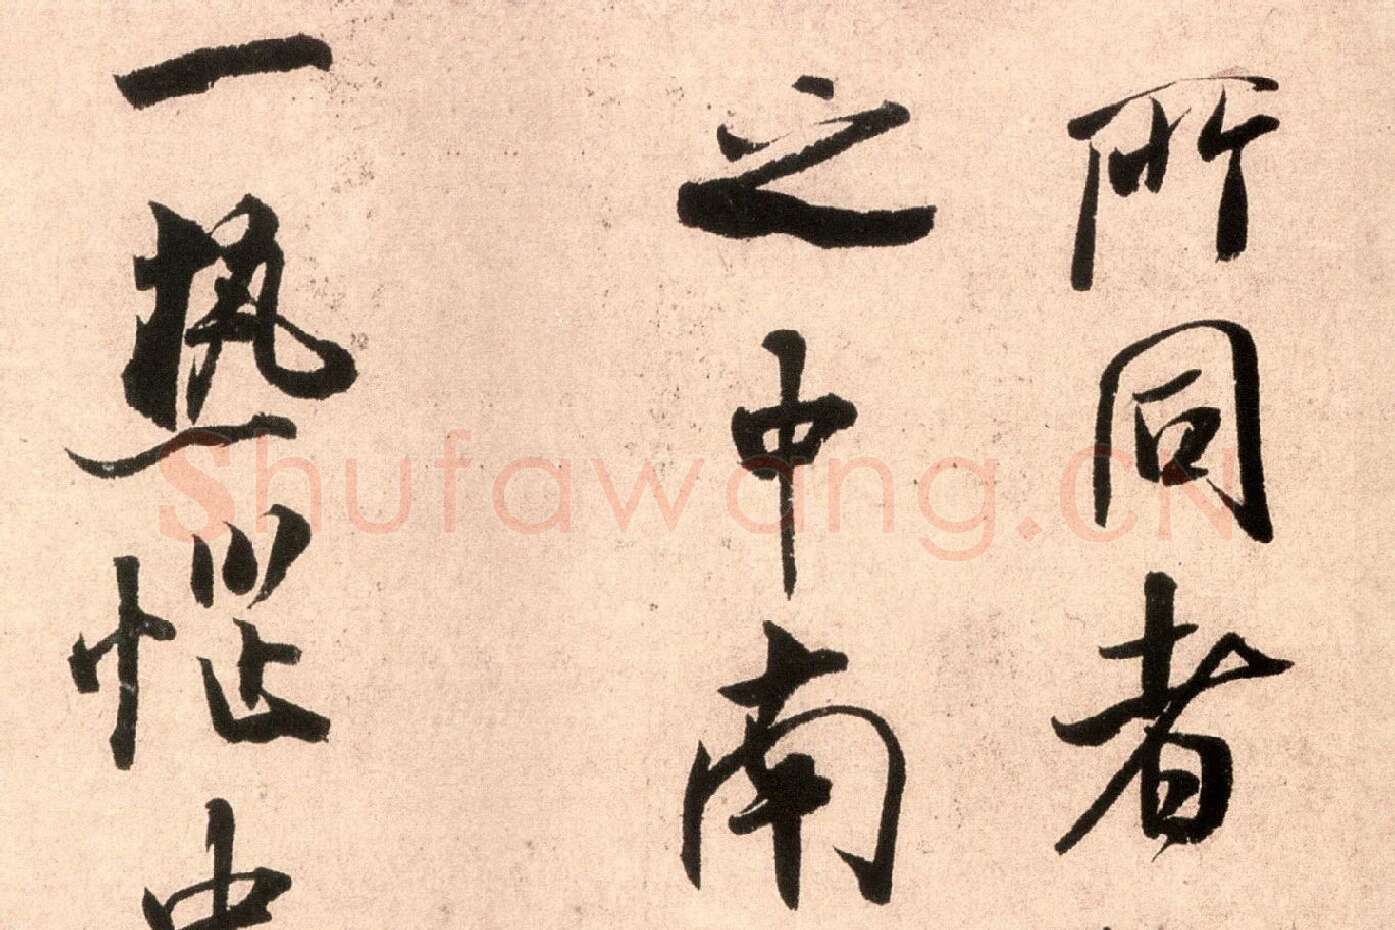 所同者
之中南
一熱惱中
Shufawang.CN